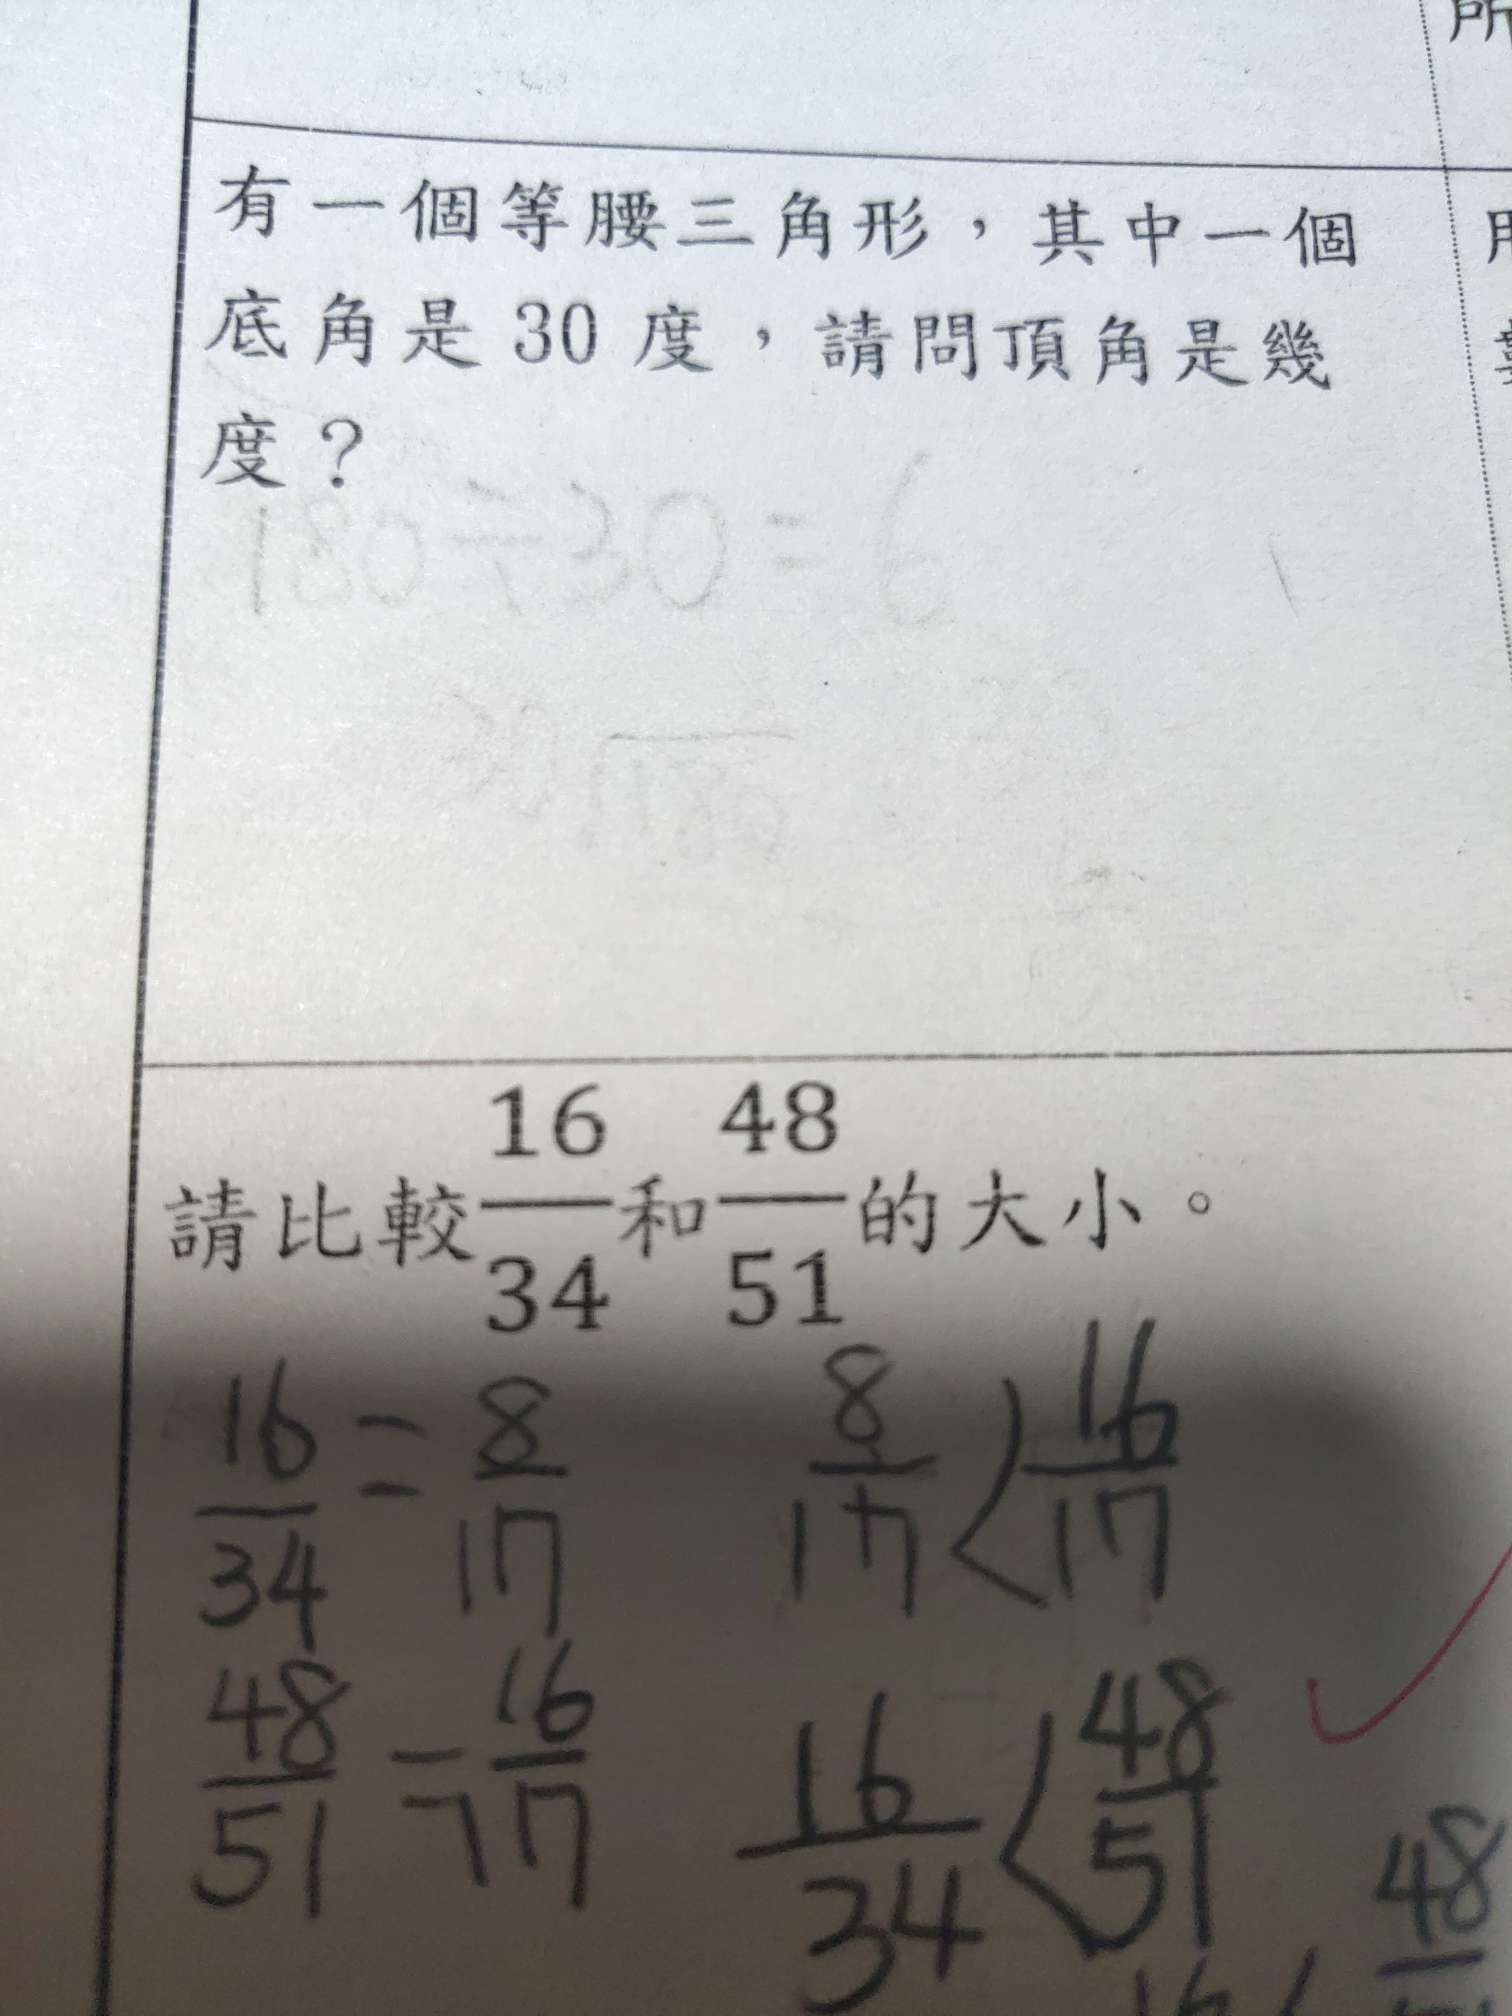 所
有一個等腰三角形，其中一個
底角是 30 度，請問頂角是幾
度？
180÷30=6
請比較16/34和48/51的大小。
16/34=8/17
8/17<16/17
48/51=16/17
16/34<48/51
48
16